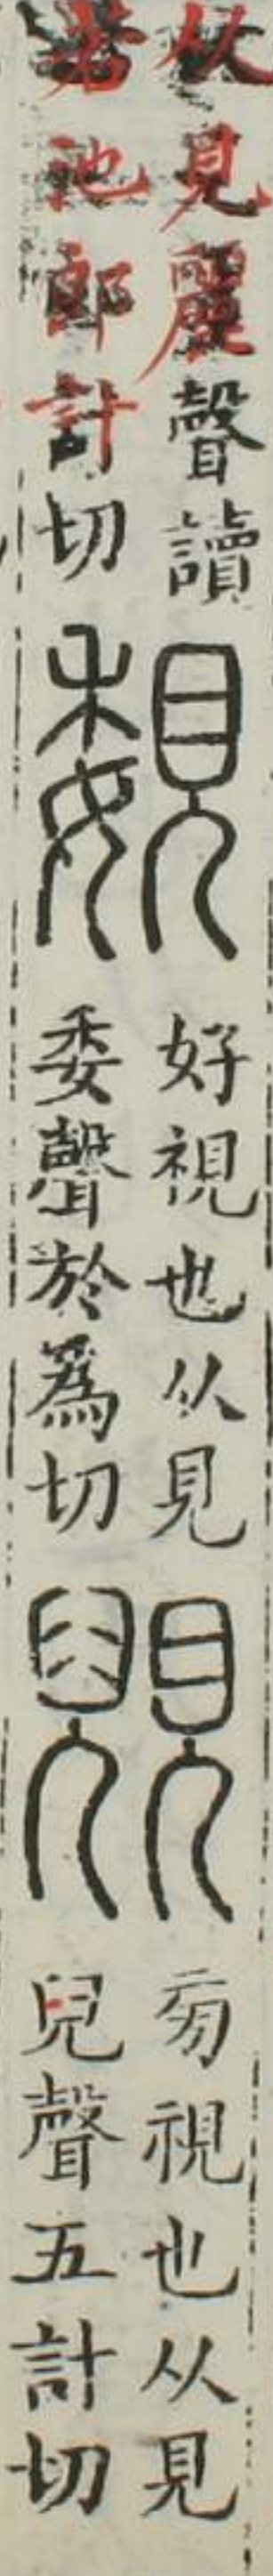 从見麗聲讀
若池郎計切
覣
好視也从見
委聲於爲切
㫄視也从見
兒聲五計切